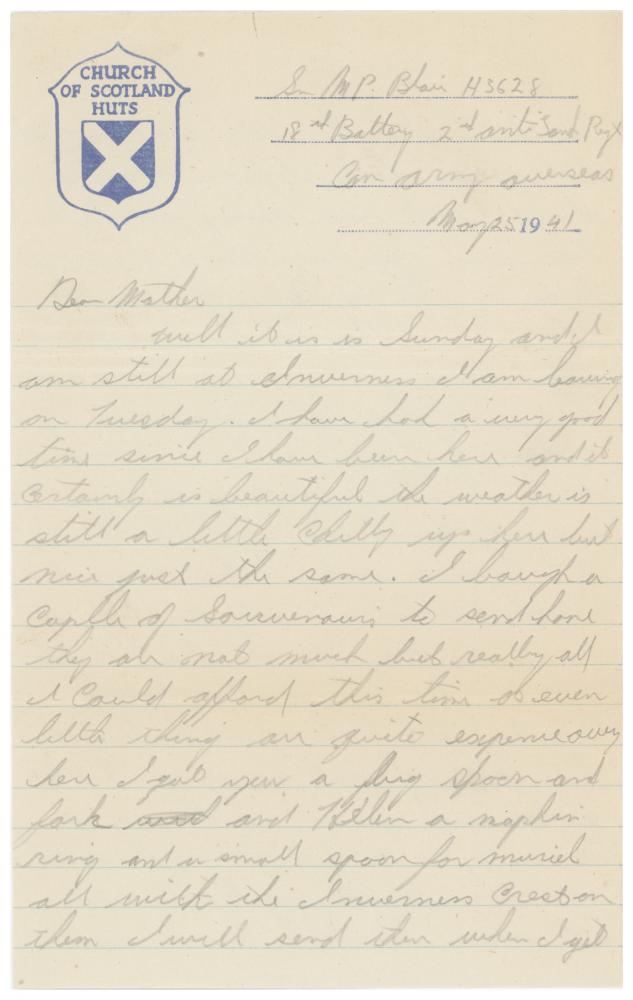 CHURCH
OF SCOTLAND
HUTS
Gnr M P. Blair H3628
18th Battery 2nd anti Tank Regt
Can army overseas
May 25 1941
Dear Mother
well it is is Sunday and I
am still at Inverness I am leaving
on Tuesday. I have had a very good
time since I have been here and it
certainly is beautiful the weather is
still a little chilly up here but
nice just the same. I bough a
Cuplle of Souvenours to send home
they are not much but really all
I could afford this time as even
little thing are quite expencie over
here I got you a big spoon and
fork and and Helen a napkin
ring and a small spoon for muriel
all with the Inverness Crest on
them I will send then when I get